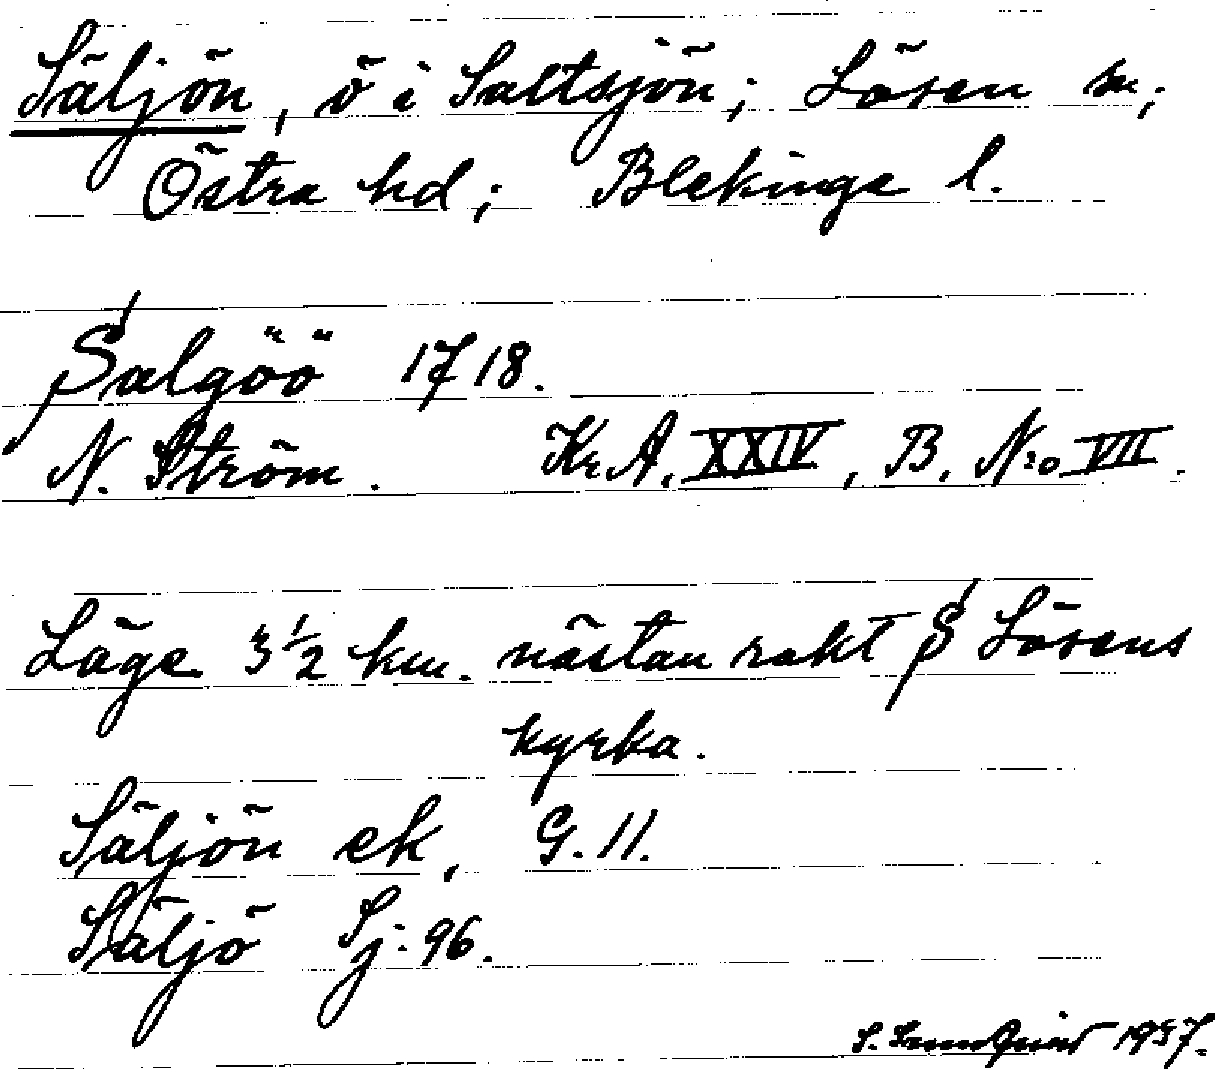 Säljön, ö i Saltsjön; Lösen sn;
Östra hd; Blekinge l.
Salgöö 1718.
N. Ström. Kr. A. XXIV, B. No VII.
Läge 3 1/2 km. nästan rakt S Lösens
kyrka.
Säljön ek, G. 11.
Säljö Sj. 96.
S. 1937.